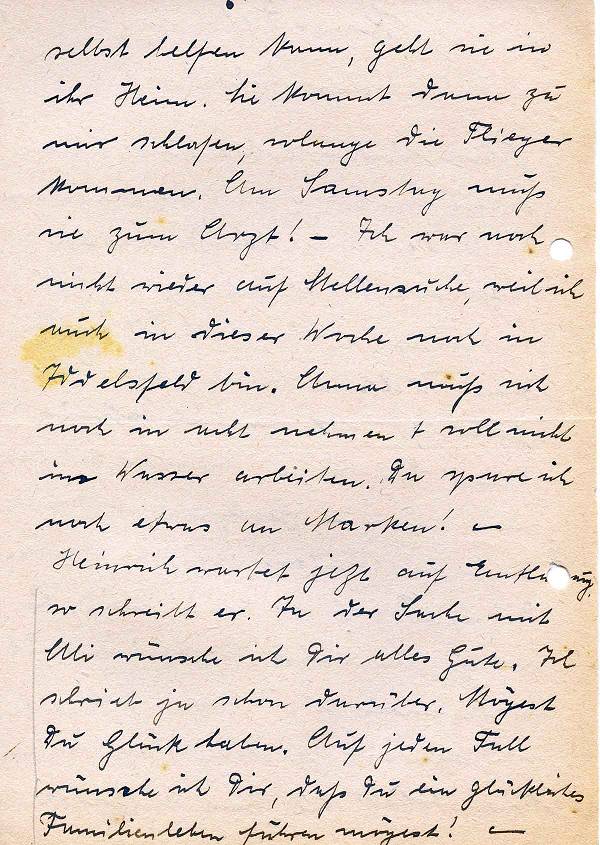 selbst helfen kann, geht sie in
ihr Heim. Sie kommt dann zu
mir schlafen, solange die Flieger
kommen. Am Samstag muß
sie zum Arzt! – Ich war noch
nicht wieder auf Stellensuche, weil ich
auch in dieser Woche noch in
Iddelsfeld bin. Anna muß sich
noch in acht nehmen + soll nicht
im Wasser arbeiten. Da spare ich
noch etwas an Marken! –
Heinrich wartet jetzt auf
so schreibt er. In der Sache mit
wünsche ich Dir alles Gute. Ich
schrieb ja schon darüber. Mögest
Du Glück haben. Auf jeden Fall
wünsche ich Dir, daß Du ein glückliches
Familienleben führen mögest! –